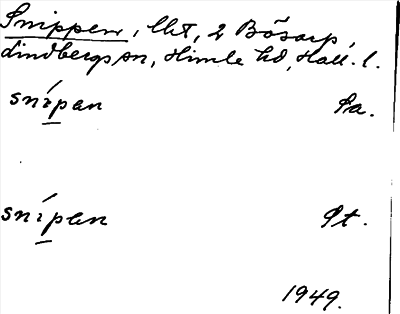 Snippen, lht, 2 Bösarp,
Lindbergs sn, Himle hd, Hall. l.
snípan Sa.
snípen St.
1949.